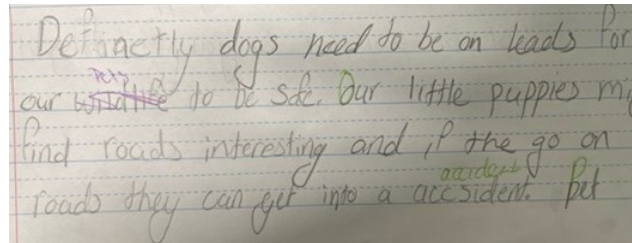 Definetly dogs need to be on leads for
our pets to be safe. Our little puppies mi
find roads interesting and if the go on
accident
roads they can get into a accsident. But